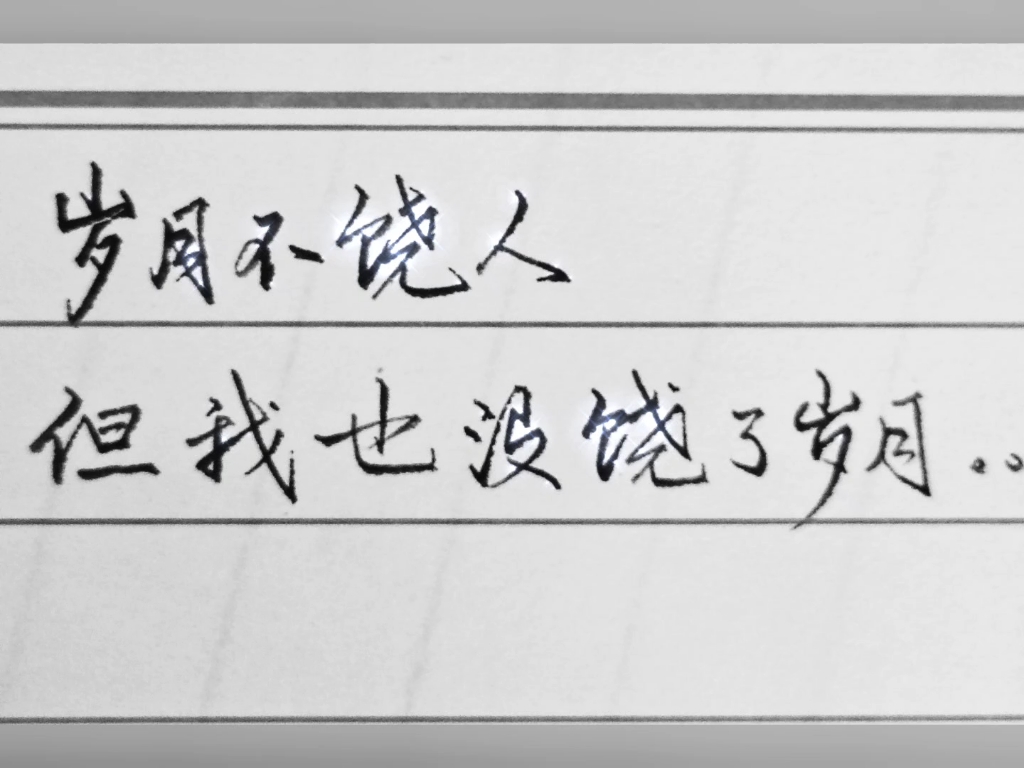 岁月不饶人
但我也没饶了岁月..